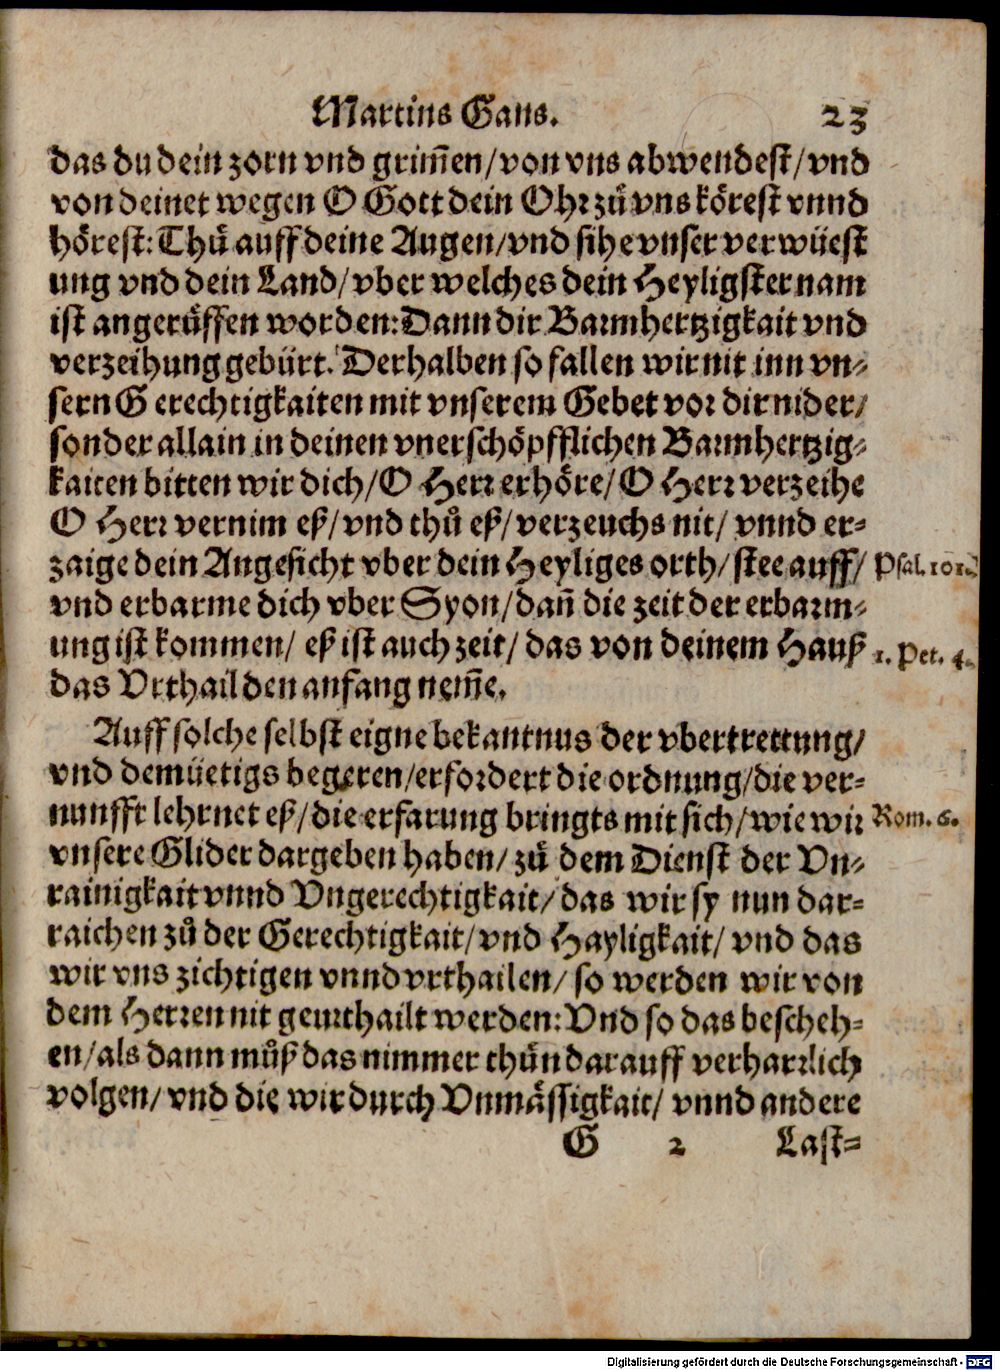 Martins Gans. 23
das du dein zorn vnd grim̃en/von vns abwendest/vnd
von deinet wegen O Gott dein Ohr zů vns körest vnnd
hörest: Thů auff deine Augen/vnd sihe vnser verwüest
ung vnd dein Land/vber welches dein Heyligster nam
ist angerůffen worden: Dann dir Barmhertzigkait vnd
verzeihung gebürt. Derhalben so fallen wir nit inn vn-
sern Gerechtigkaiten mit vnserem Gebet vor dir nider/
sonder allain in deinen vnerschöpfflichen Barmhertzig-
kaiten bitten wir dich/O Herr erhöre/O Herr verzeihe
O Herr vernim eß/vnd thů eß/verzeuchs nit/ vnnd er-
zaige dein Angesicht vber dein Heyliges orth/stee auff/ Psal. 101.
vnd erbarme dich vber Syon/dañ die zeit der erbarm-
ung ist kommen/ eß ist auch zeit/ das von deinem Hauß 1. Pet. 4.
das Vrthail den anfang nem̃e.
Auff solche selbst eigne bekantnus der vbertrettung/
vnd demüetigs begeren/erfordert die ordnung/die ver-
nunfft lehrnet eß/die erfarung bringts mit sich/wie wir Rom. 6.
vnsere Glider dargeben haben/zů dem Dienst der Vn-
rainigkait vnnd Vngerechtigkait/das wir sy nun dar-
raichen zů der Gerechtigkait/vnd Hayligkait/ vnd das
wir vns zichtigen vnnd vrthailen/so werden wir von
dem Herren nit geurthailt werden: Vnd so das bescheh-
en/als dann můß das nimmer thůn darauff verharrlich
volgen/vnd die wir durch Vnmässigkait/ vnnd andere
G 2 Last-
Digitalisierung gefördert durch die Deutsche Forschungsgemeinschaft - DFG